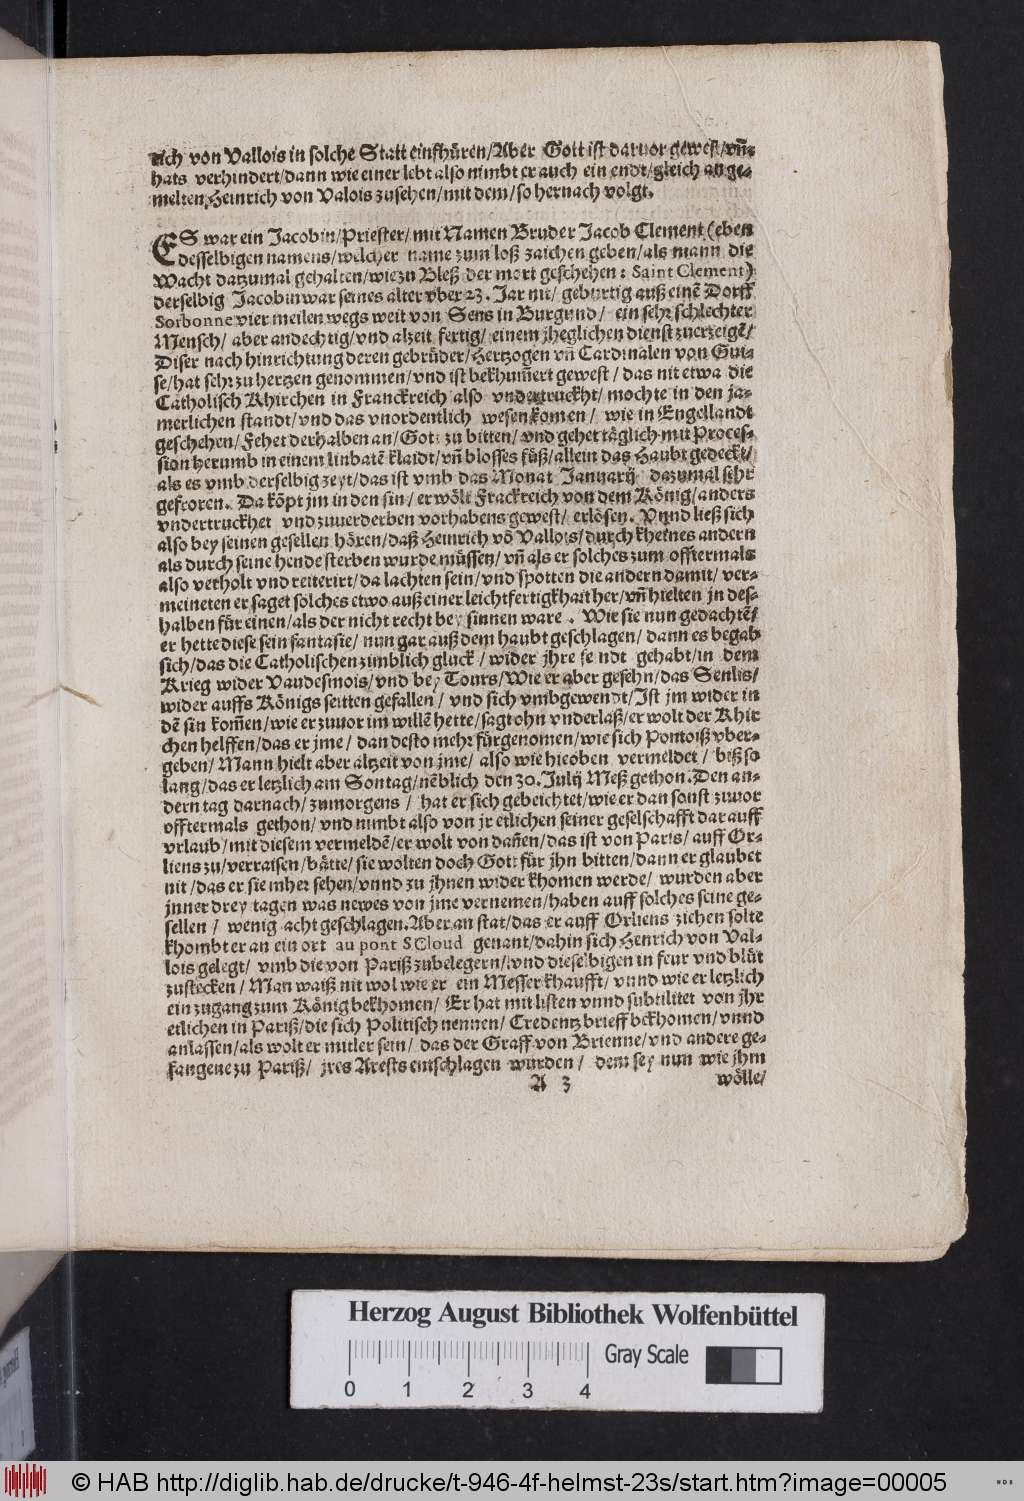 rich von Vallois in solche Statt einfhüren/Aber Gott ist daruor gewest/vñ
hats verhindert/dann wie einer lebt also nimbt er auch ein endt/gleich an ge-
melten Heinrich von Valois zusehen/mit dem/so hernach volgt.
ES war ein Jacobin/Priester/mit Namen Bruder Jacob Clement (eben
desselbigen namens/welcher name zum loß zaichen geben/als mann die
Wacht datzumal gehalten/wie zu Bleß der mort geschehen: Saint Clement)
derselbig Jacobin war seines alter vber 23. Jar nit/ gebürtig auß einẽ Dorff
Sorbonne vier meilen wegs weit von Sens in Burgund/ ein sehr schlechter
Mensch/ aber andechtig/vnd alzeit fertig/ einem jheglichen dienst zuerzeigẽ/
Diser nach hinrichtung deren gebrüder/Hertzogen vñ Cardinälen von Gui-
se/hat sehr zu hertzen genommen/vnd ist bekhum̃ert gewest/ das nit etwa die
Catholisch Khirchen in Franckreich also vndertruckht/ mochte in den ja-
merlichen standt/vnd das vnordentlich wesen komen/ wie in Engellandt
geschehen/Fehet derhalben an/Gott zu bitten/ vnd gehet täglich mit Proces-
sion herumb in einem linbatẽ klaidt/vñ blosses füß/allein das Haubt gedeckt/
als es vmb derselbig zeyt/das ist vmb das Monat Januarij dazumal sehr
gefroren. Da kõpt jm in den sin/ er wölt Frackreich von dem König/anders
vndertruckhet vnd zuuerderben vorhabens gewest/ erlösen. Vnnd ließ sich
also bey seinen gesellen hören/daß Heinrich võ Vallois/durch kheines andern
als durch seine hende sterben wurde müssen/ vñ als er solches zum offtermals
also verholt vnd reiterirt/da lachten sein/vnd spotten die andern damit/ ver-
meineten er saget solches etwo auß einer leichtfertigkhait her/vñ hielten jn des-
halben für einen/als der nicht recht bey sinnen ware. Wie sie nun gedachtẽ/
er hette diese sein fantasie/ nun gar auß dem haubt geschlagen/ dann es begab
sich/das die Catholischen zimblich gluck/ wider jhre feindt gehabt/in dem
Krieg wider Vaudesmois/vnd bey Tours/Wie er aber gesehn/das Senlis/
wider auffs Königs seitten gefallen/ vnd sich vmbgewendt/Ist jm wider in
dẽ sin kom̃en/wie er zuuor im willẽ hette/sagt ohn vnderlaß/er wolt der Khir
chen helffen/das er jme/ dan desto mehr fürgenomen/wie sich Pontoiß vber-
geben/Mann hielt aber altzeit von jme/ also wie hieoben vermeldet/ biß so
lang/das er letzlich am Sontag/nẽblich den 30. Julij Meß gethon.Den an-
dern tag darnach/ zumorgens/ hat er sich gebeichtet/wie er dan sonst zuuor
offtermals gethon/ vnd nimbt also von jr etlichen seiner geselschafft darauff
vrlaub/mit diesem vermeldẽ/er wolt von dañen/das ist von Paris/ auff Or-
liens zu/verraisen/bätte/ sie wolten doch Gott für jhn bitten/dann er glaubet
nit/das er sie mher sehen/vnnd zu jhnen wider khomen werde/ wurden aber
jnner drey tagen was newes von jme vernemen/haben auff solches seine ge-
sellen/ wenig acht geschlagen.Aber an stat/das er auff Orliens ziehen solte
khombt er an ein ort au pont S Cloud genant/dahin sich Henrich von Val-
lois gelegt/ vmb die von Pariß zubelegern/vnd dieselbigen in feur vnd blüt
zustecken/Man waiß nit wol wie er ein Messer khaufft/ vnnd wie er letzlich
ein zugang zum König bekhomen/ Er hat mit listen vnnd subtilitet von jhr
etlichen in Pariß/die sich Politisch nennen/ Credentzbrieff bekhomen/vnnd
anlassen/als wolt er mitler sein/ das der Graff von Brienne/vnd andere ge-
fangene zu Pariß/ jres Arests entschlagen wurden/ dem sey nun wie jhm
A 3 wölle/
Herzog August Bibliothek Wolfenbüttel
Gray Scale
0 1 2 3 4
© HAB http://diglib.hab.de/drucke/t-946-4f-helmst-23s/start.htm?image=00005